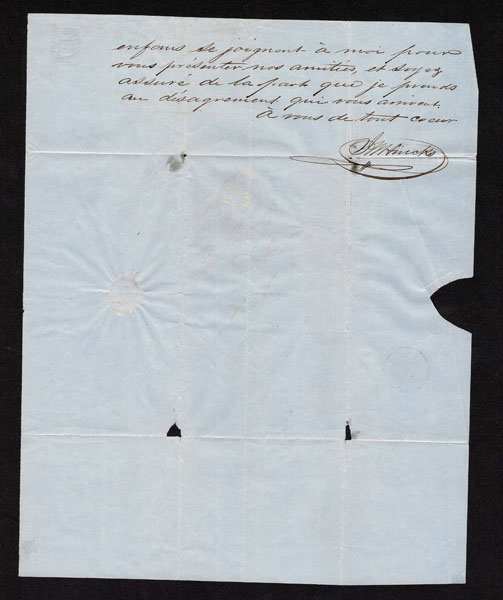 enfans se joignent à moi pour
vous présenter nos amitiés, et soyez
assuré de la part que je prends
au désagrément qui vous arrivent.
À vous de tout coeur